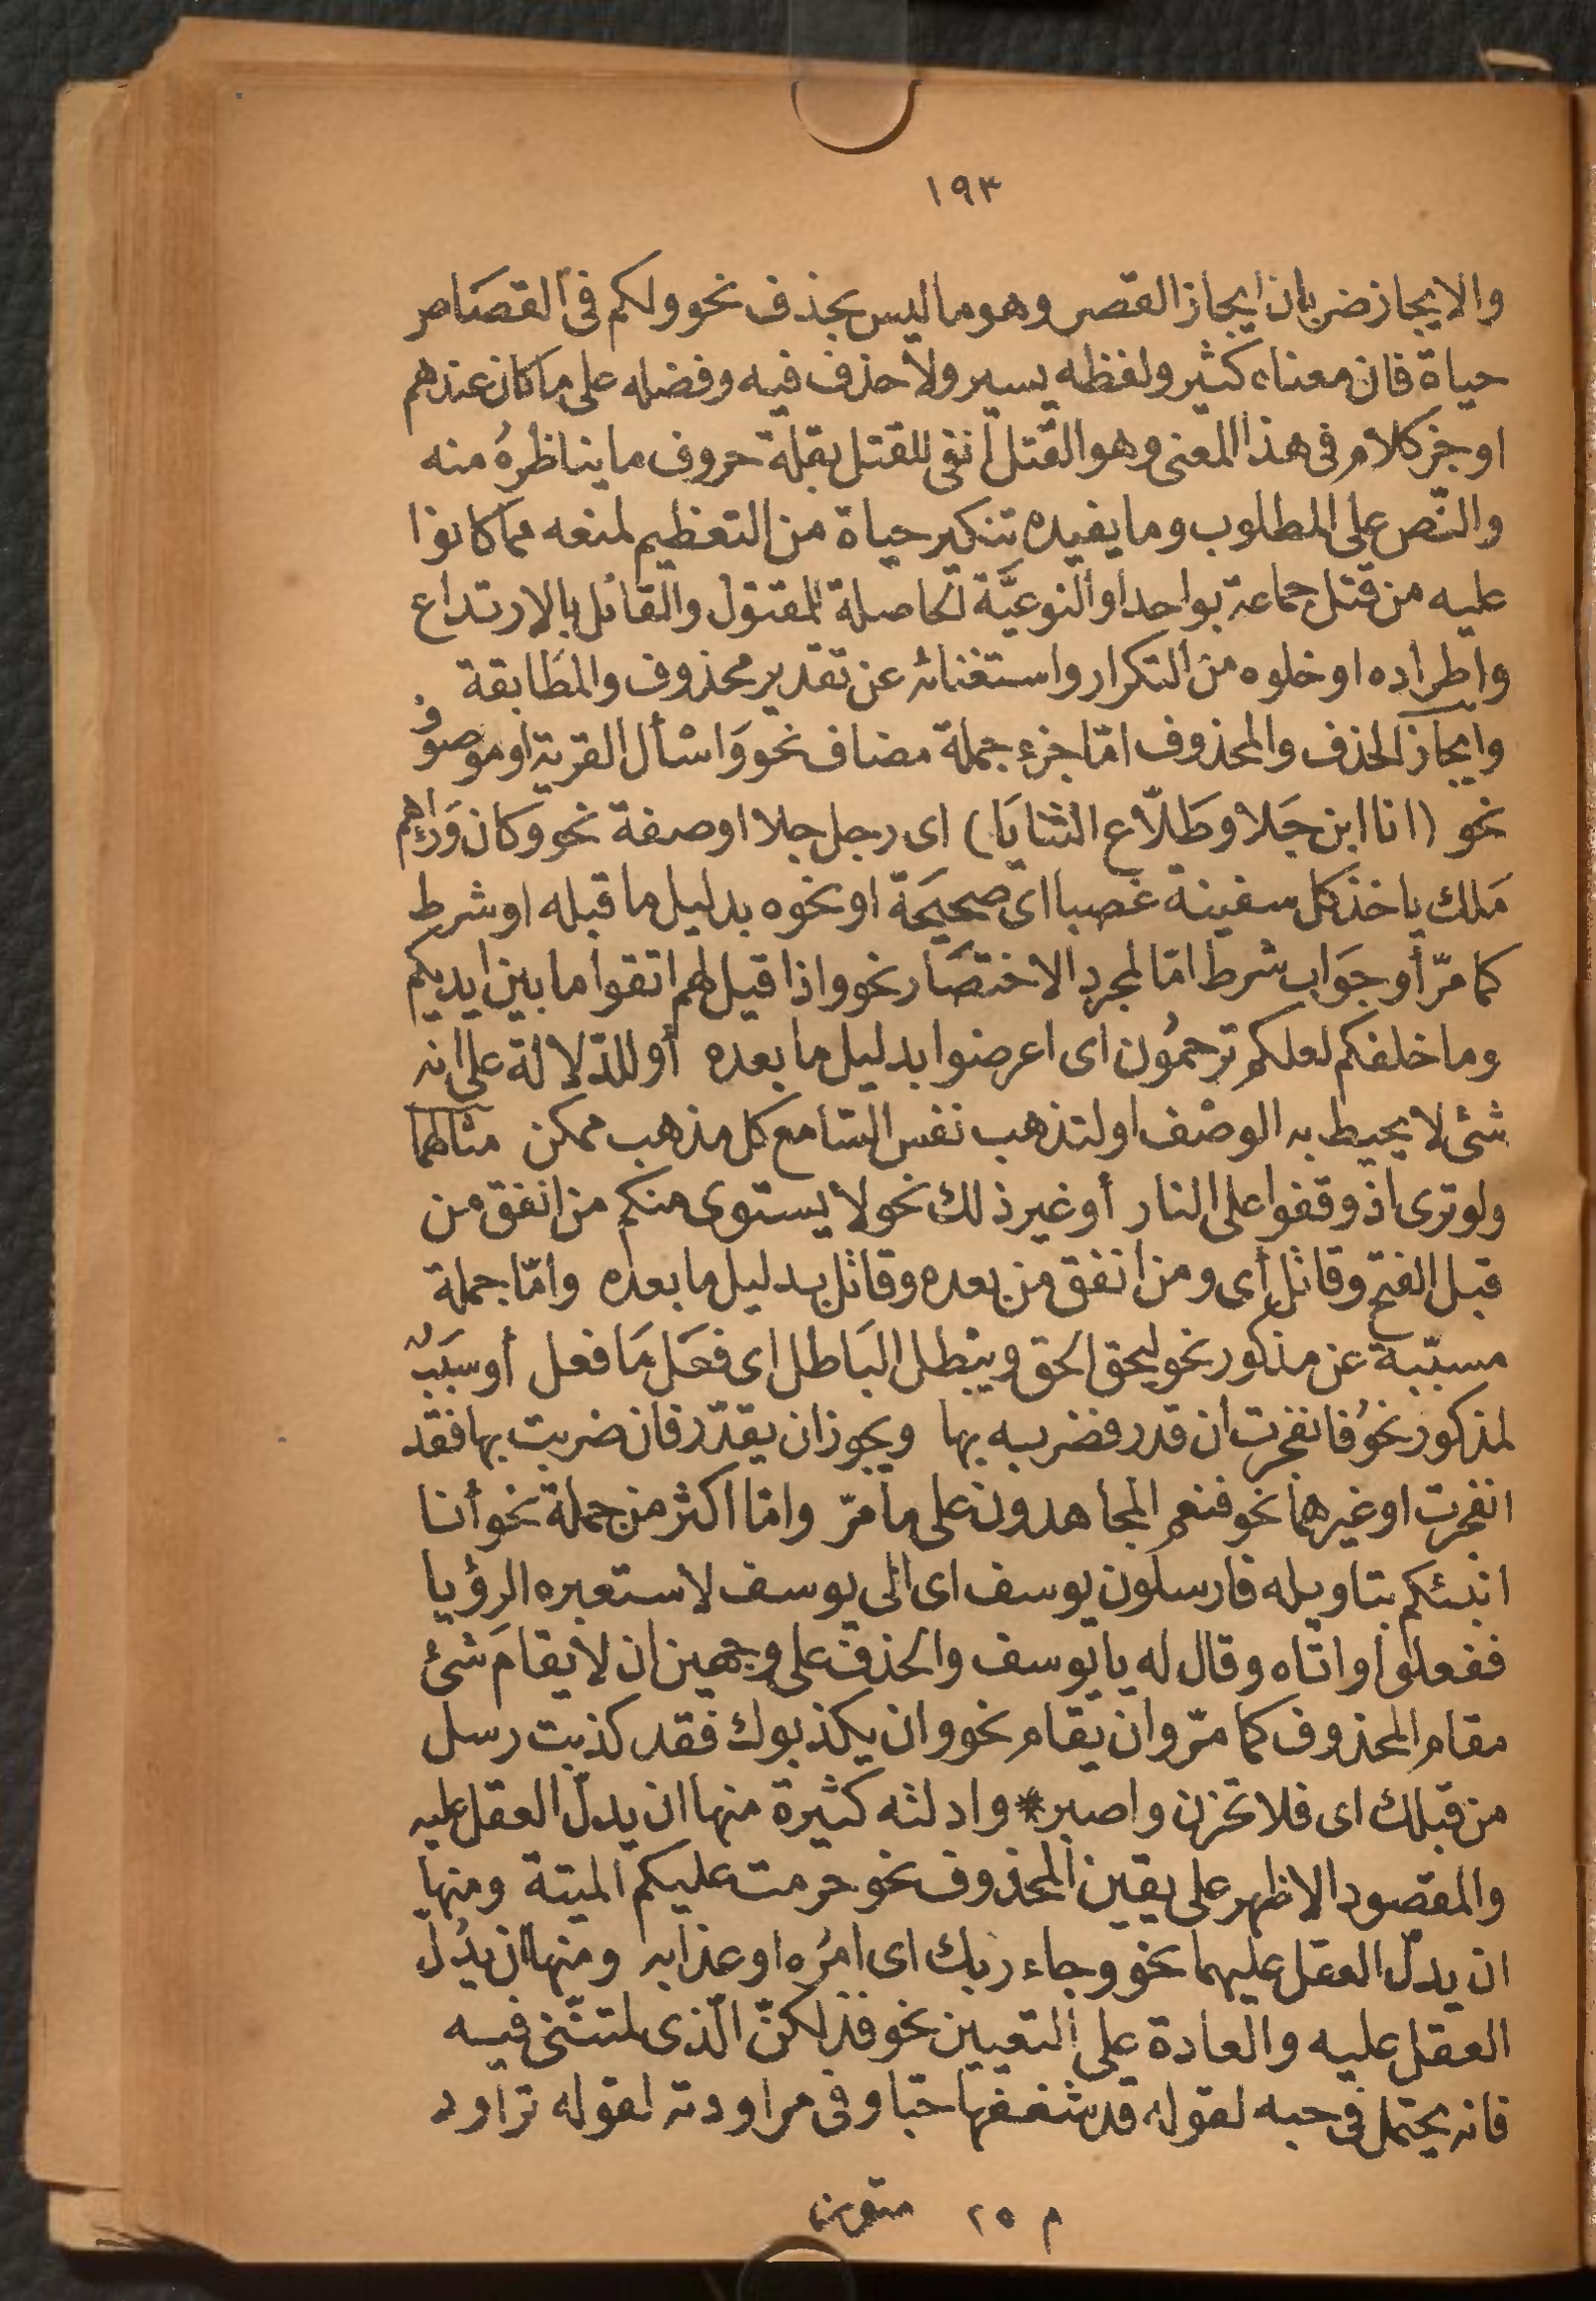 ١٩٣
والايجاز ضربان ايجاز القصر وهو ما ليس بحذف نحو ولكم فى القصاص
حياة فان معناه كثير ولفظه يسير ولا حذف فيه وفضله على ما كان عندهم
اوجز كلام فى هذا المعنى وهو القتل أنفى للقتل بقلة حروف ما يناظرُه منه
والنّص على المطلوب وما يفيده تنكير حياة من التعظيم لمنعه مما كانوا
عليه من قتل جماعة بواحد او النوعيَّة الحاصلة للمقتول والقاتل بالارتداع
واطراده او خلوه من التكرار واستغنائه عن تقدير محذوف والمطابقة
وايجاز الحذف والمحذوف امّا جزء جملة مضاف نحو وَاسْأل القرية او موصوف
نحو (انا ابن جَلا وطَلّاع الثنايَا) اى رجل جلا او صفة نحو وكان وَرَاءهم
مَلك ياخذ كل سفينة غصبا اى صحيحَة او نحوه بدليل ما قبله او شرط
كما مرّ أو جوَاب شرط امّا لمجرد الاختصَار نحو واذا قيل لهم اتقوا ما بين ايديكم
وما خلفكم لعلكم ترحمُون اى اعرضوا بدليل ما بعده أو للدّلالة على انه
شئ لا يحيط به الوصْف او لتذهب نفس السّامع كل مذهب ممكن مثالهما
ولو ترى اذ وقفوا على النار أو غير ذلك نحو لا يستوى منكم من انفق من
قبل الفتح وقاتل أى ومن انفق من بعده وقاتل بدليل ما بعده وامّا جملة
مسبّبة عن مذكور نحو ليحق الحق ويبْطل البَاطل اى فعَل مَا فعل أو سبَبٌ
لمذكور نحوُ فانفجرت ان قدر فضربه بها ويجوز ان يقدّر فان ضربت بها فقد
انفجرت او غيرهما نحو فنعم المجاهدون على ما مرّ وامّا اكثر من جملة نحو أنا
انبئكم بتاويله فارسلون يوسف اى الى يوسف لاستعبره الرؤيا
ففعلوا واتاه وقال له يا يوسف والحذف على وجهين ان لا يقامَ شئ
مقام المحذوف كما مرّ وان يقام نحو وان يكذبوك فقد كذبت رسل
من قبلك اى فلا تحزن واصبر * وادلته كثيرة منها ان يدلّ العقل عليه
والمقصود الاظهر على يقين المحذوف نحو حرمت عليكم الميتة ومنها
ان يدلّ العقل عليهما نحو وجاء ربك اى امرُه او عذابه ومنها ان يدُلّ
العقل عليه والعادة على التعيين نحو فذلكنّ الّذى لمتنّنى فيه
فانه يحتمل فى حبه لقوله قد شغفها حبّا وفى مراودته لقوله تراود
م ٢٥ متون